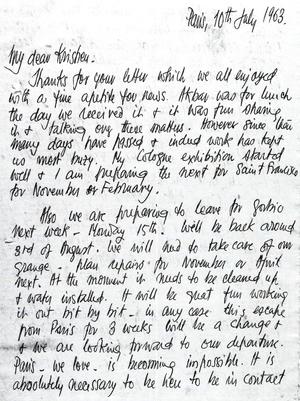 Paris, 10th July 1963.
My dear Krishen.
Thanks for your letter which we all enjoyed
with a fine apetite for news. Akbar was for lunch
the day we received it & it was fun sharing
it & talking over these matters. However since then
many days have passed & indeed work has kept
us most busy. My Cologne exhibition started
well & I am preparing the next for Saint Francisco
for November or February.
Also we are preparing to leave for Gorbio
next week - Monday 15th. Will be back around
3rd of August. We will had to take care of our
grange - plan repairs for November or April
next. At the moment it needs to be cleaned up
& water installed. It will be great fun working
it out bit by bit - in any case this escape
from Paris for 3 weeks will be a change &
& we are looking forward to our departure.
Paris - we love - is becoming impossible. It is
absolutely necessary to be here to be in contact